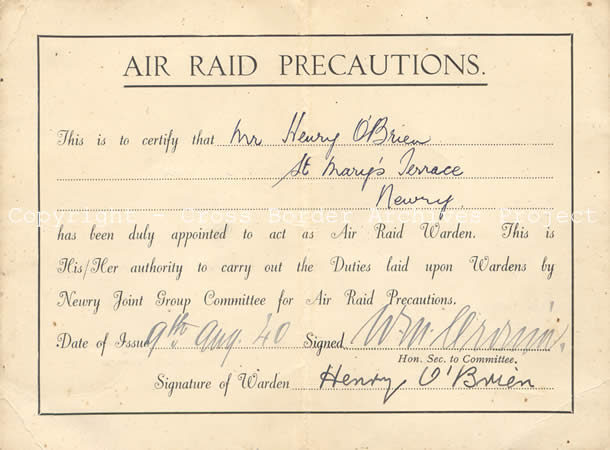 AIR RAID PRECAUTIONS.
This is to certify that Mr Henry O'Brien
St Mary's Terrace
Newry
Copyright - Cross Border Archives Project
has been duly appointed to act as Air Raid Warden. This is
His/Her authority to carry out the Duties laid upon Wardens by
Newry Joint Group Committee for Air Raid Precautions.
Date of Issue 9th Aug. 40 Signed Wm.
Hon. Sec. to Committee.
Signature of Warden Henry O'Brien